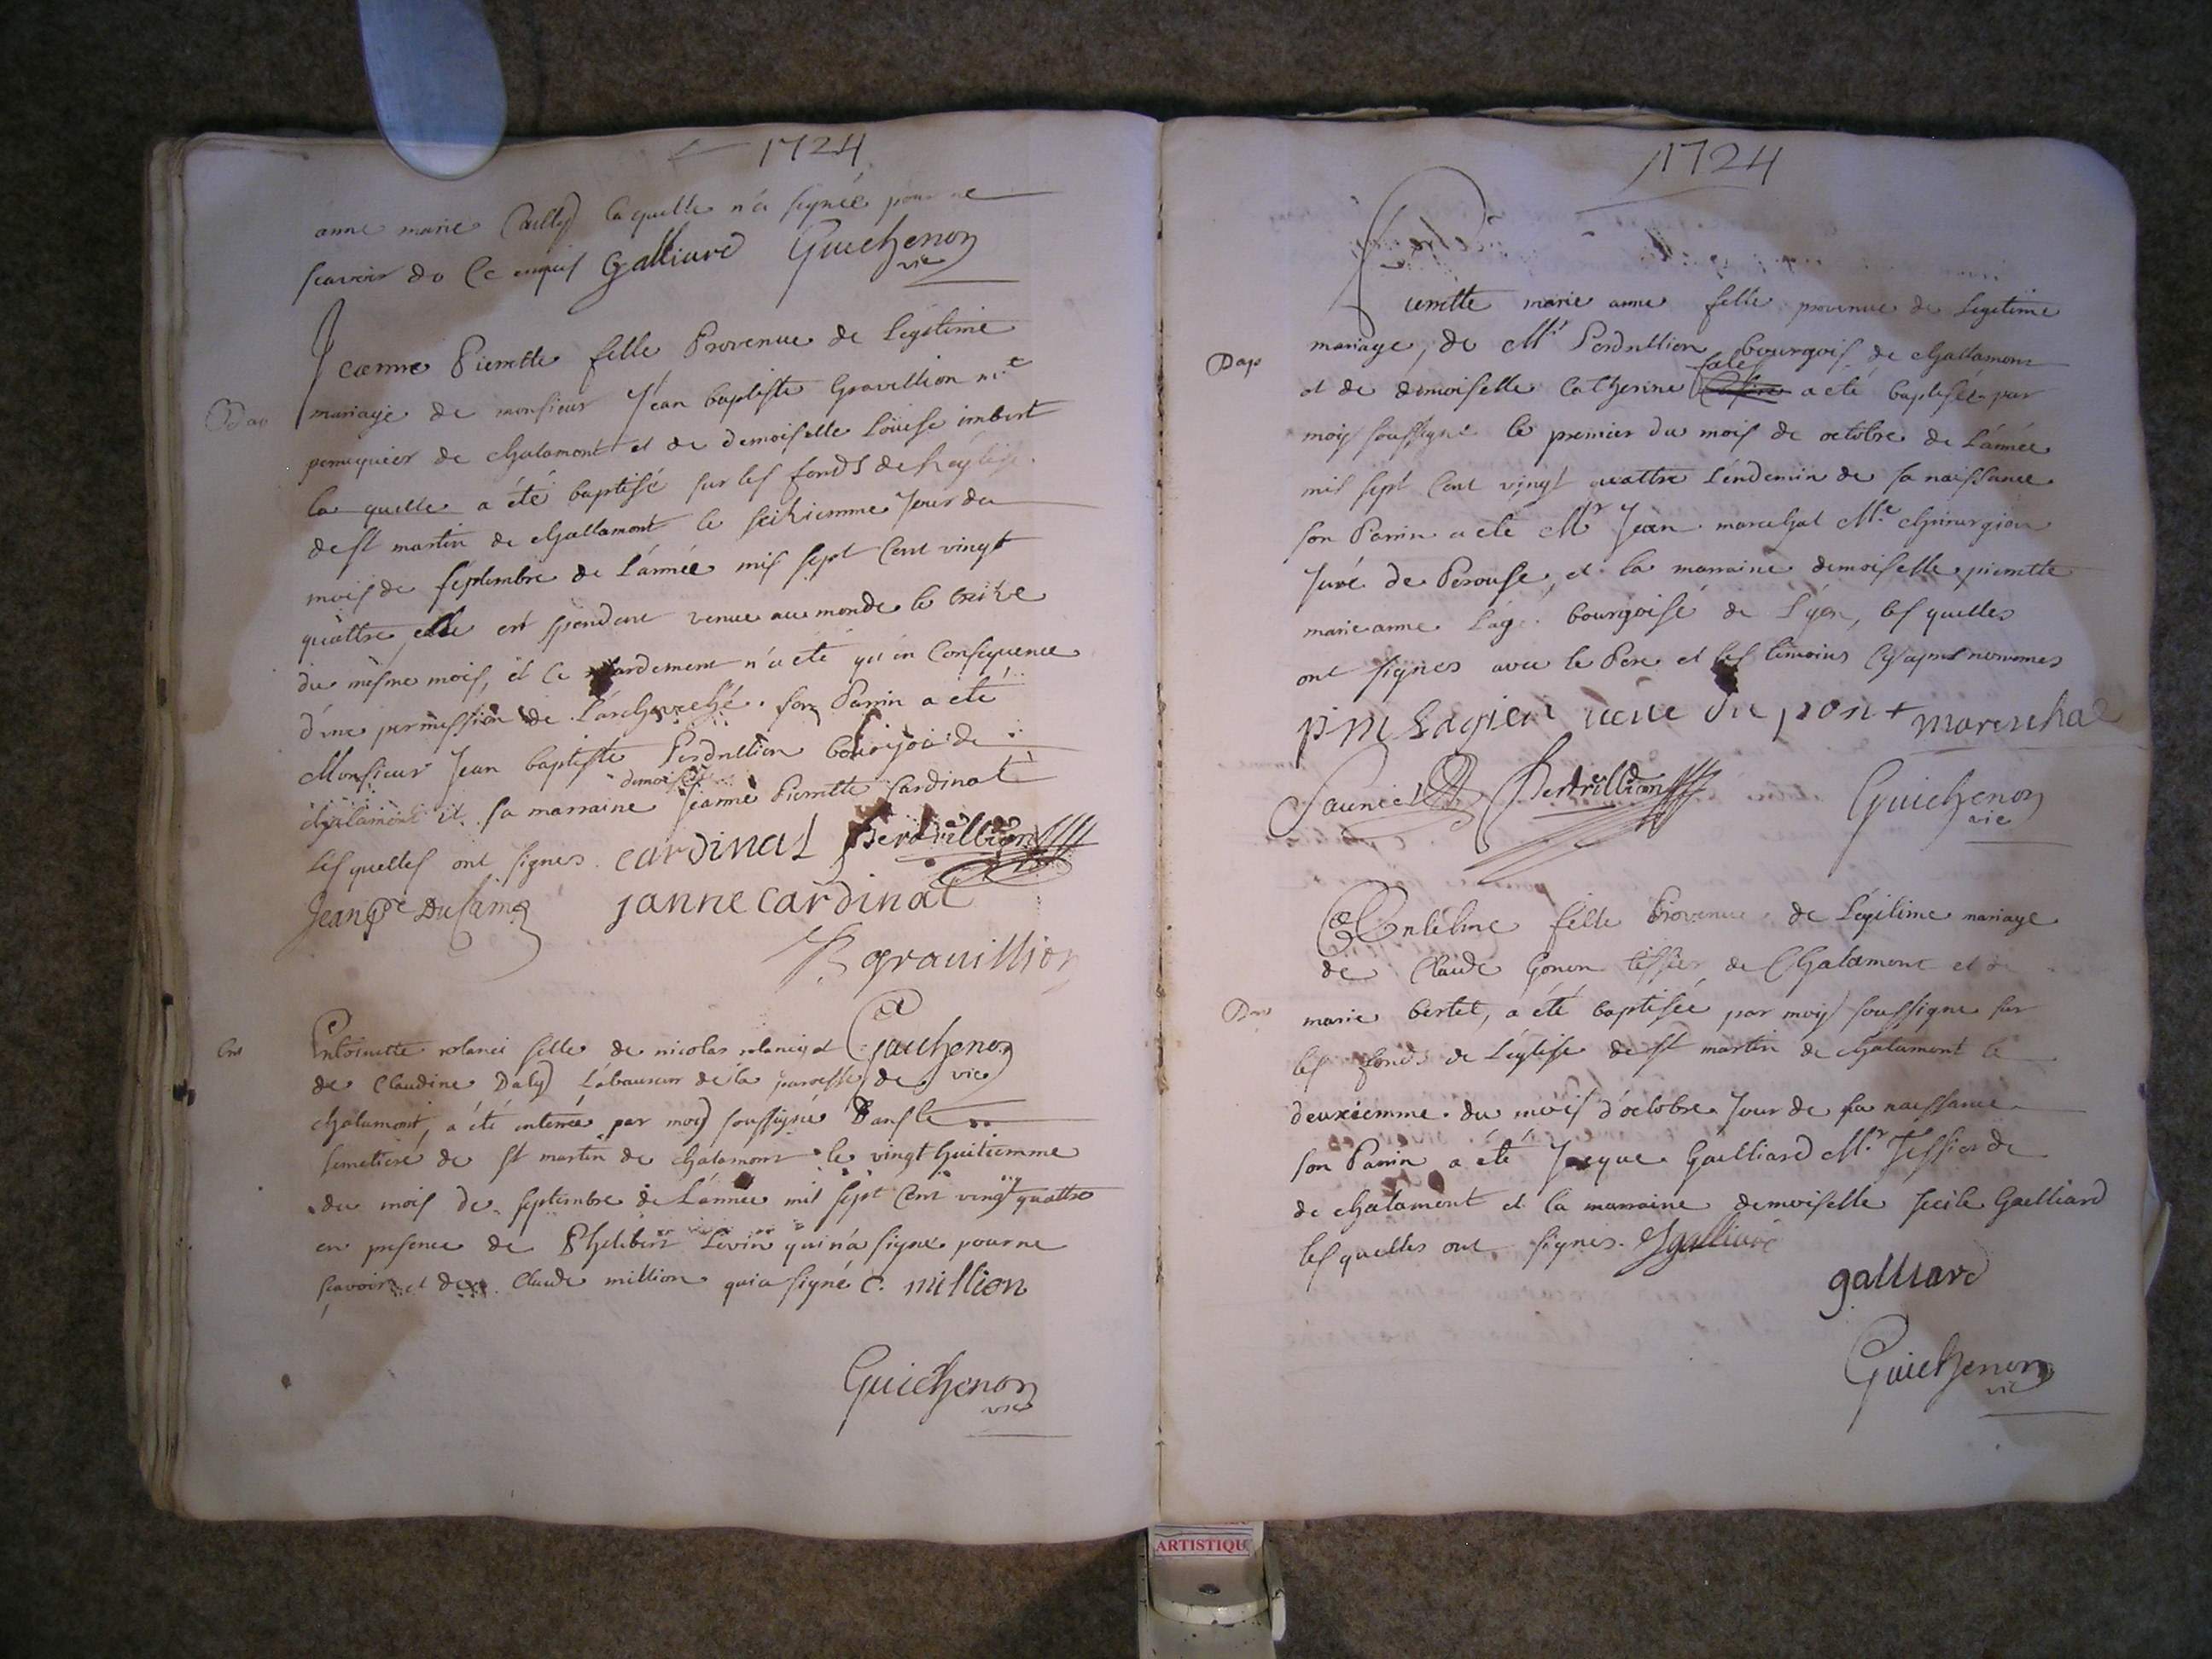 1724
anne marie Cailly la quelle n'a signée pour ne
scavoir de ce enquis Galliard Guichenon
vic
Jeanne Pierrette fille Provenue de Legitime
Bap
mariage de monsieur Jean baptiste Gravillion me
peruquier de chalamont et de demoiselle Louise imbert
la quelle a été baptisé sur les fonds de l'eglise
de st martin de chatlamont le seiziemme Jour du
mois de septembre de L'année mil sept Cent vingt
quattre, elle est spendent venue au monde le treize
du mesme mois, et ce retardement n'a été qu'en Consequence
d'une permission de L'archeveché. son Parrin a eté
Monsieur Jean baptiste Perdrillion bourgois de
demoiselle
chalamont et sa marraine Jeanne Pierrette Cardinal
les quelles ont signes. cardinal Perdrillion
Jean janne cardinal
gravillion
Guichenon
vic
Antoinette rolanci fille de nicolas rolanci et
de Claudine Daly Labaureur de la paroisse de
chalamont, a été enterrée par moy soussigné Dans le
simetiere de st martin de chalamont le vingt huitiemme
du mois de septembre de L'année mil sept Cent vingt quattre
en presence de Philibert Levin qui n'a signé pour ne
scavoir et de Claude million qui a signé C. million
Guichenon
vic
1724
Pierrette marie anne fille provenue de Legitime
mariage, de Mr Perdrillion bourgois de chatlamont
Bap
et de demoiselle Catherine a eté baptisée par
moy soussigné le premier du mois de octobre de L'année
mil sept Cent vingt quattre Lendemin de sa naissance
son Parrin a eté Mr Jean marechal Me chirurgien
Juré de Perouse, et la marraine demoiselle pierrette
marie anne bourgoise de Lyon, les quelles
ont signes avec le Pere et les temoins cy apres nommes
pm Lagier veuve du pont mareschal
Saunier Perdrillion Guichenon
vic
Entelme fille Provenue de Legitime mariage
de Claude Gonon tissier de Chalamont et de
marie bertet, a été baptisée par moy soussigne sur
les fonds de L'eglise de st martin de chalamont le
deuxiemme du mois d'octobre Jour de sa naissance
son Parrin a été Jacque Gailliard Mr Tissier de
de chalamont et la marraine demoiselle secile Gailliard
les quelles ont signes. Jgalliard
galliard
Guichenon
vic
ARTISTIQU